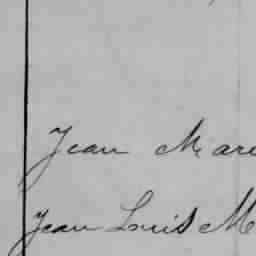 Jean Mare
Jean Louis M